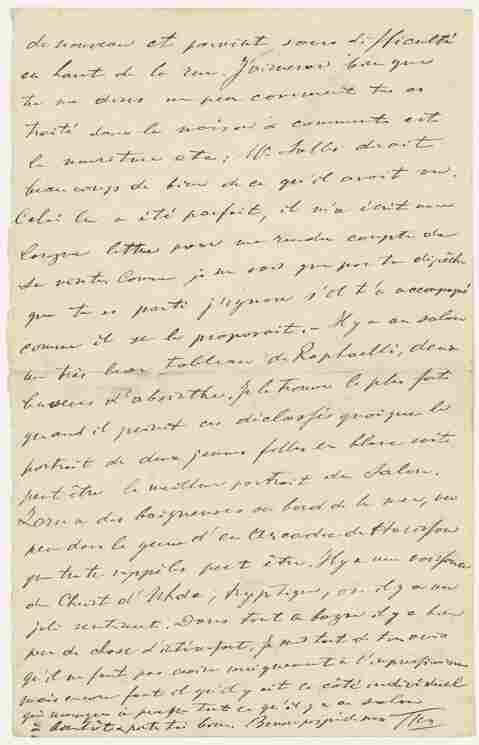 de nouveau et parvint sans difficulté
en haut de la rue. J'aimerais bien que
tu me dises un peu comment tu es
traité dans la maison & comment est
la nourriture etc; M. Salles disait
beaucoup de bien de ce qu'il avait vu.
Celui la a été parfait, il m'a écrit une
longue lettre pour me rendre compte de
sa visite. Comme je ne sais que par ta dépêche
que tu es parti j'ignore s'il t'a accompagné
comme il se le proposait. – Il y a au salon
un très beau tableau de Raphaelli, deux
buveurs d'absinthe. Je le trouve le plus fort
quand il peint ces déclassés quoique le
portrait de deux jeunes filles en blanc soit
peut être le meilleur portrait du Salon.
Zorn a des baigneuses au bord de la mer, un
peu dans le genre d'en Arcadie de Harrison
que tu te rappelles peut être. Il y a une
du Christ d'Uhde, tryptique, où il y a un
joli sentiment. Dans tout ce bazar il y a bien
peu de chose d'intéressant. Je suis tout de ton avis
qu'il ne faut pas croire uniquement à l'impressionisme
mais encore faut il qu'il y ait ce côté individuel
qui manque à presque tout ce qu'il y a au salon
à bientôt porte toi bien. Bonne poignée de main Theo